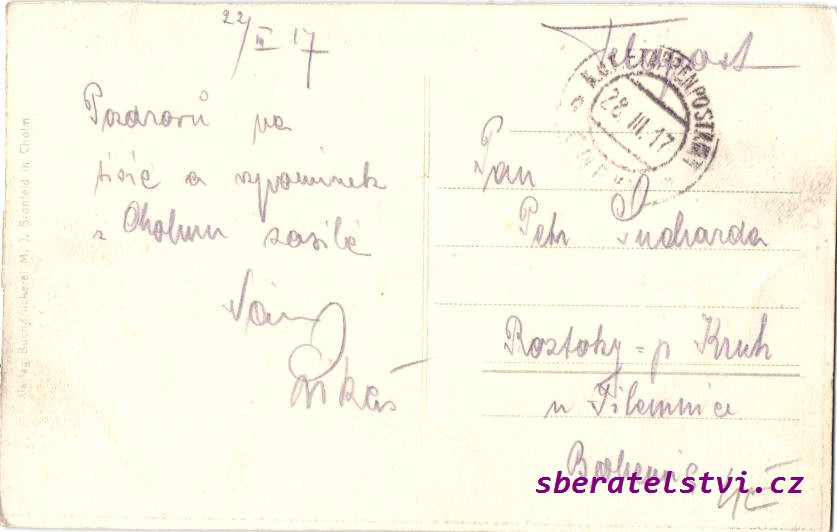 22/III 17
Feldpost
K.u.K. ETAPPENPOSTAMT
28.III.17
Pozdravů na
tisíc a vzpomínek
z Cholmu zasílá
Vám
Pan
Petr Sucharda
Roztoky - p Kruh
u Jilemnice
Bohemia
Verlag Buchdruckerei M. J. Bronfeld in Cholm
sberatelstvi.cz